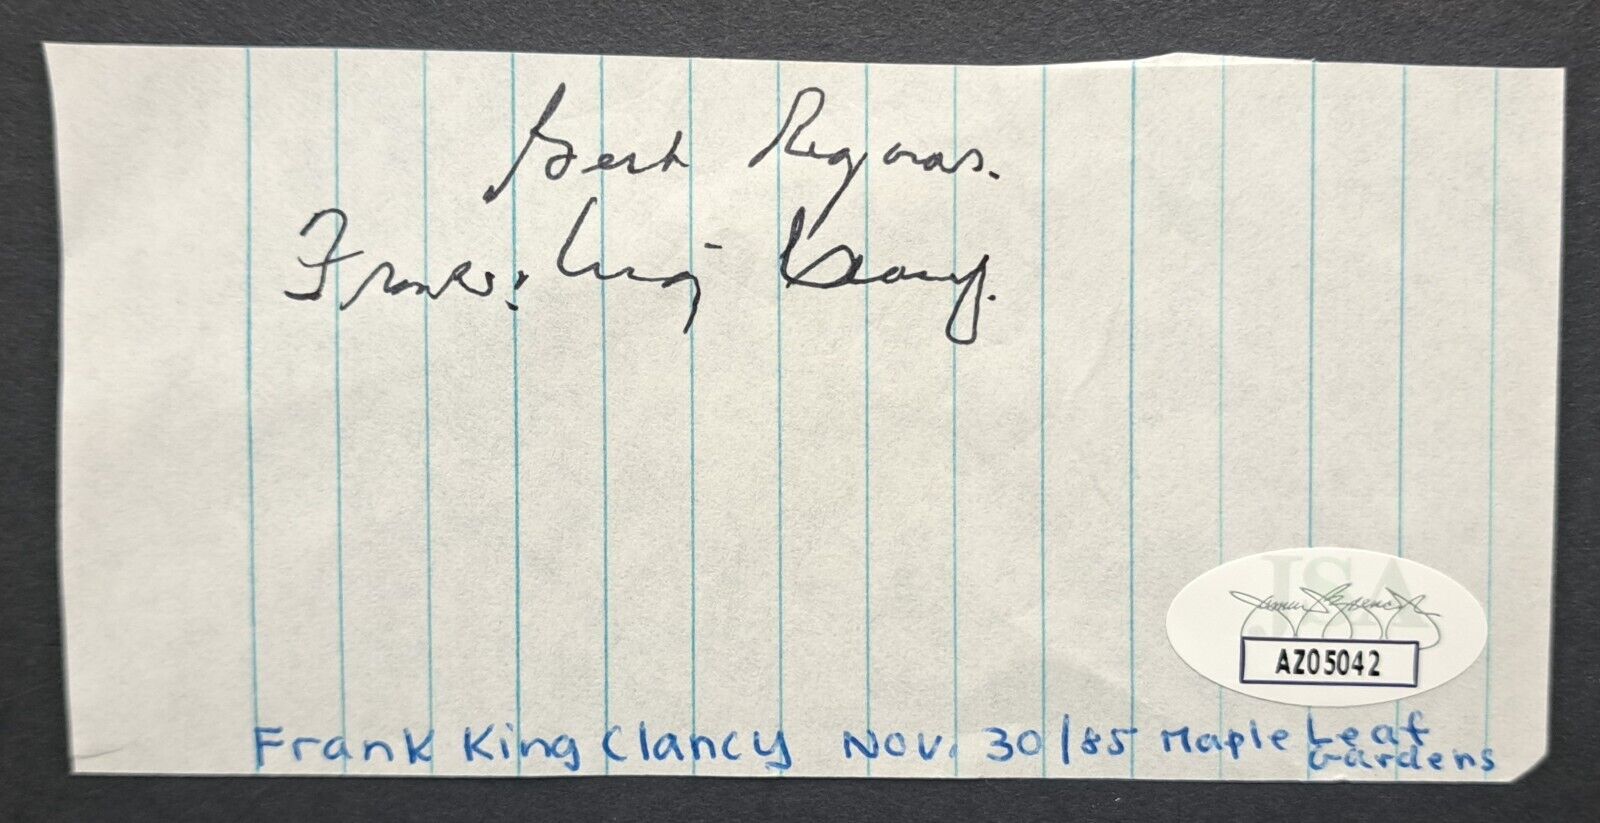 Best Regards.
Frank: King Clancy.
JSA
James Spence
AZ05042
Frank King Clancy Nov. 30/85 Maple Leaf
Gardens